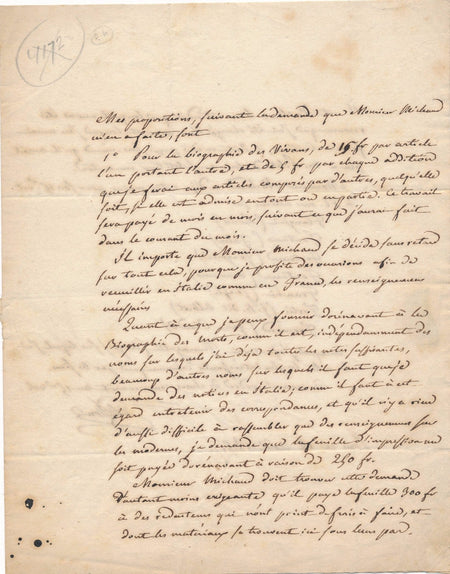 4172
Mes propositions, suivant la demande que Monsieur Michaud
m'en a faite, sont
1° Pour la biographie des Vivans, de 15 fr par article
l'un portant l'autre, et de 5 fr par chaque addition
que je ferai aux articles composés par d'autres, quelqu'elle
soit, si elle est admise en tout ou en partie. Le travail
sera payé de mois en mois, suivant ce que j'aurai fait
dans le courant du mois.
Il importe que Monsieur Michaud se décide sans retard
sur tout cela, pour que je profite des occasions afin de
recueillir en Italie comme en France, les renseignemens
nécessaires
Quant à ce que je peux fournir dorénavant à la
Biographie des Morts, comme il est, indépendamment des
noms sur lesquels j'ai déjà toutes les notes suffisantes,
beaucoup d'autres noms sur lesquels il faut que je
demande des notices en Italie, comme il faut à cet
égard entretenir des correspondances, et qu'il n'y a rien
d'aussi difficile à rassembler que des renseignemens sur
les modernes, je demande que la feuille d'impression me
soit payée dorénavant à raison de 250 fr.
Monsieur Michaud doit trouver cette demande
d'autant moins exigeante qu'il paye la feuille 300 fr
à des rédacteurs qui n'ont point de frais à faire, et
dont les matériaux se trouvent ici sous leurs pas.